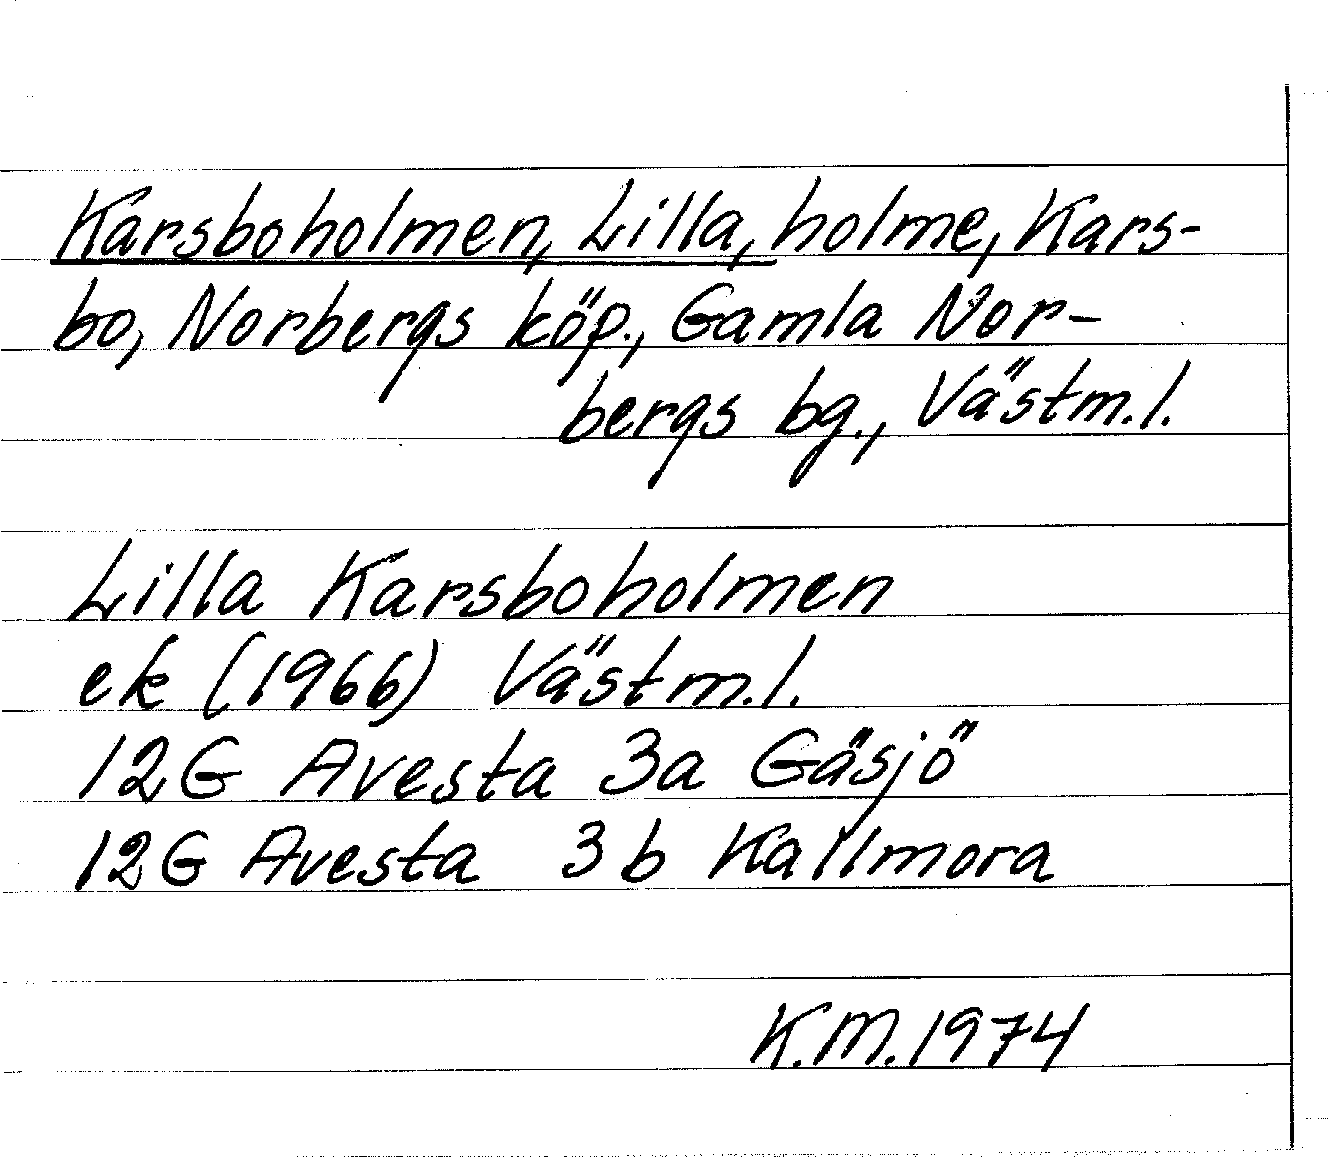 Karsboholmen, Lilla, holme, Kars-
bo, Norbergs köp., Gamla Nor-
bergs bg., Västm.l.
Lilla Karsboholmen
ek (1966) Västm.l.
12G Avesta 3a Gäsjö
12G Avesta 3b Kallmora
K.M. 1974